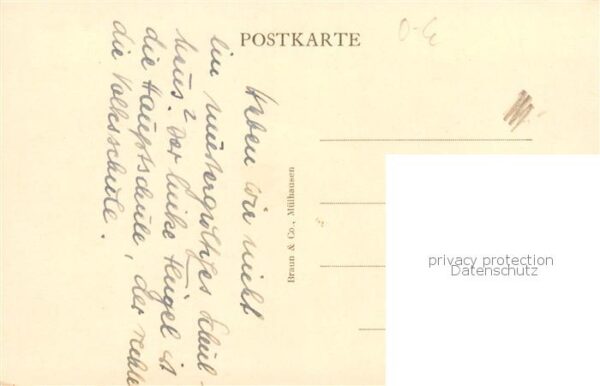 POSTKARTE
O-E
Haben wir nicht
ein mustergültiges Schul-
haus? Der linke Flügel ist
die Hauptschule, der rechte
die Volksschule.
Braun & Co., Mülhausen
privacy protection
Datenschutz